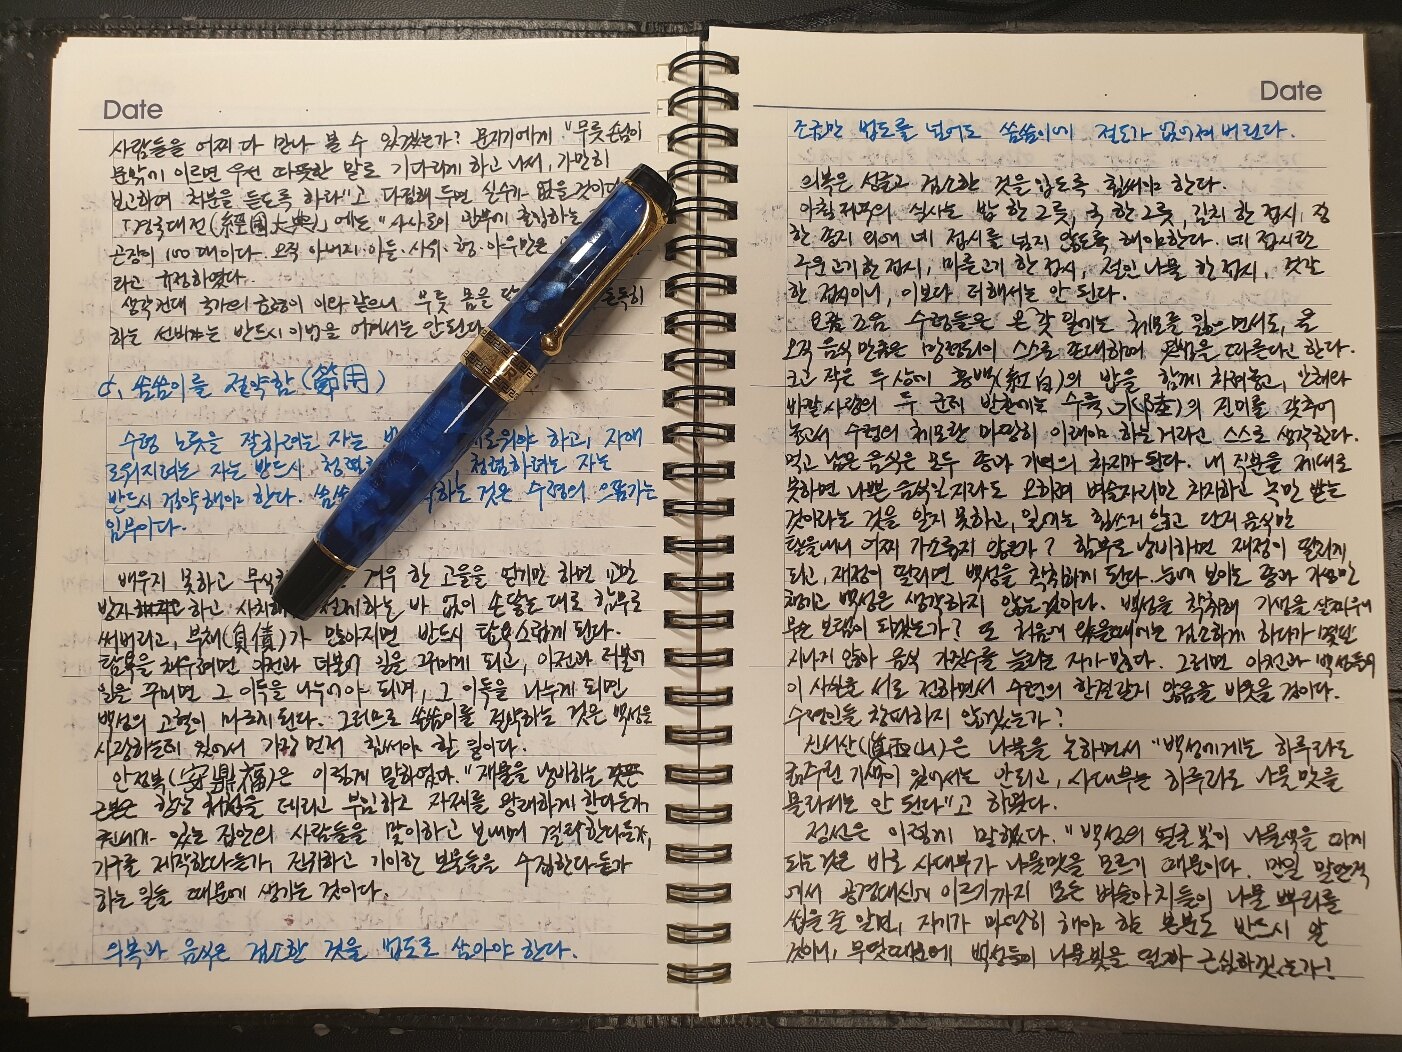 Date
사람들을 어찌 다 만나 볼 수 있겠는가? 문지기에게 "무릇 손님이
문밖에 이르면 우선 따뜻한 말로 기다리게 하고 나서, 가만히
보고하여 처분을 듣도록 하라"고 다짐해 두면 실수가 없을 것이다
「경국대전(經國大典)」에는 "사사로이 출입하는
곤장이 100대이다. 오직 아버지·아들·사위·형·아우만은
라고 규정하였다.
생각건대 국가의 이와 같으니 무릇 몸을
하는 선비는 반드시 이법을 어겨서는 안된다
5. 씀씀이를 절약함(節用)
수령 노릇을 잘하려는 자는 로워야 하고, 자애
로워지려는 자는 반드시 청렴 청렴하려는 자는
반드시 검약해야 한다. 씀씀 하는 것은 수령의 으뜸가는
임무이다.
배우지 못하고 무식 겨우 한 고을을 얻기만 하면 교만
방자 하고 사치 절제하는 바 없이 손닿는 대로 함부로
써버리고, 부채(負債)가 많아지면 반드시 탐욕스럽게 된다.
탐욕을 채우려면 아전과 더불어 일을 꾸미게 되고, 아전과 더불어
일을 꾸미면 그 이득을 나누어야 되며, 그 이득을 나누게 되면
백성의 고혈이 마르게 된다. 그러므로 씀씀이를 절약하는 것은 백성을
사랑하는데 있어서 가장 먼저 힘써야 할 일이다.
안정복(安鼎福)은 이렇게 말하였다. "재물을 낭비하는
근본은 항상 처첩을 데리고 부임하고 자제를 왕래하게 한다든가,
있는 집안의 사람들을 맞이하고 보내며 한다든가,
가구를 제작한다든가, 진귀하고 기이한 보물들을 수집한다든가
하는 일들 때문에 생기는 것이다.
의복과 음식은 검소한 것을 법도로 삼아야 한다.
Date
조금만 법도를 넘어도 씀씀이에 절도가 없어져 버린다.
의복은 성글고 검소한 것을 입도록 힘써야 한다.
아침저녁의 식사는 밥 한그릇, 국 한그릇, 김치 한 접시, 장
한 종지 외에 네 접시를 넘지 않도록 해야한다. 네 접시란
구운고기 한접시, 마른고기 한 접시, 절인나물 한 접시, 젓갈
한 접시이니, 이보다 더해서는 안 된다.
요즘 수령들은 온갖 일에는 체모를 잃으면서도,
오직 음식 만큼은 망령되이 스스로 존대하며 옛법을 따른다고 한다.
크고 작은 두상에 홍백(紅白)의 밥을 함께 차려놓고, 안채와
바깥사랑의 두 군데 반찬에는 수륙 의 진미를 갖추어
놓고서 수령의 체모란 마땅히 이래야 하는거라고 스스로 생각한다.
먹고 남은 음식은 모두 종과 기생의 차지가 된다. 내 직분을 제대로
못하면 나쁜 음식일지라도 오히려 벼슬자리만 차지하고 녹만 받는
것이라는 것을 알지 못하고, 일에는 힘쓰지 않고 단지 음식만
탐을내니 어찌 가소롭지 않은가? 함부로 낭비하면 재정이 딸리게
되고, 재정이 딸리면 백성을 착취하게 된다. 눈에 보이는 종과 기생만
챙기고 백성은 생각하지 않는것이다. 백성을 착취해 기생을 살찌우니
무슨 보탬이 되겠는가? 또 처음에 왔을때에는 검소하게 하다가 몇달
지나지 않아 음식 가짓수를 늘리는 자가 많다. 그러면 아전과 백성들이
이 사실을 서로 전하면서 수령의 한결같지 않음을 비웃을 것이다.
수령인들 창피하지 않겠는가?
진서산(眞西山)은 나물을 논하면서 "백성에게는 하루라도
굶주린 기색이 있어서는 안되고, 사대부는 하루라도 나물맛을
몰라서는 안 된다"고 하였다.
정선은 이렇게 말했다. "백성의 얼굴빛이 나물색을 띠게
되는것은 바로 사대부가 나물맛을 모르기 때문이다. 만일 말단직
에서 공경대신에 이르기까지 모든 벼슬아치들이 나물 뿌리를
씹을 줄 알면, 자기가 마땅히 해야 할 본분도 반드시 알
것이니, 무엇때문에 백성들이 나물빛을 띨까 근심하겠는가?